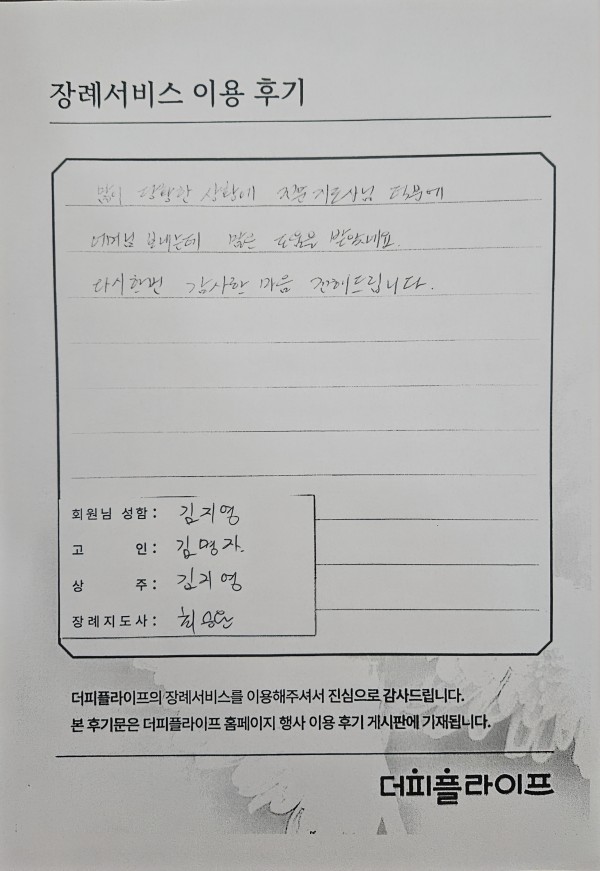 장례서비스 이용 후기
많이 당황한 상황에 지도사님 때문에
어머님 보내는데 많은 도움을 받았네요.
다시한번 감사한 마음 전해드립니다.
회원님 성함: 김지영
고 인: 김명자.
상 주: 김지영
장례지도사: 최
더피플라이프의 장례서비스를 이용해주셔서 진심으로 감사드립니다.
본 후기문은 더피플라이프 홈페이지 행사 이용 후기 게시판에 기재됩니다.
더피플라이프